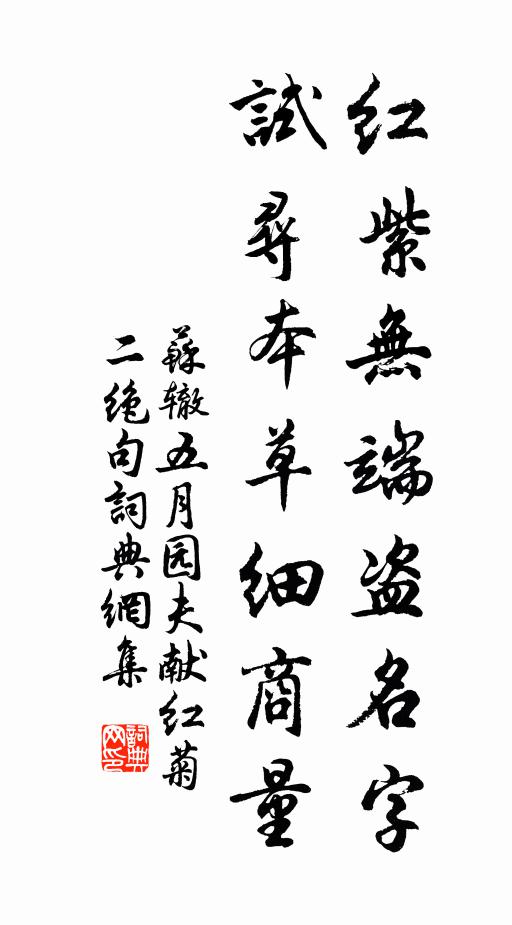 红紫無端盗名字
試尋本草細商量
蘇辙五月园夫献红菊
二绝句詞典網集
詞典
网印